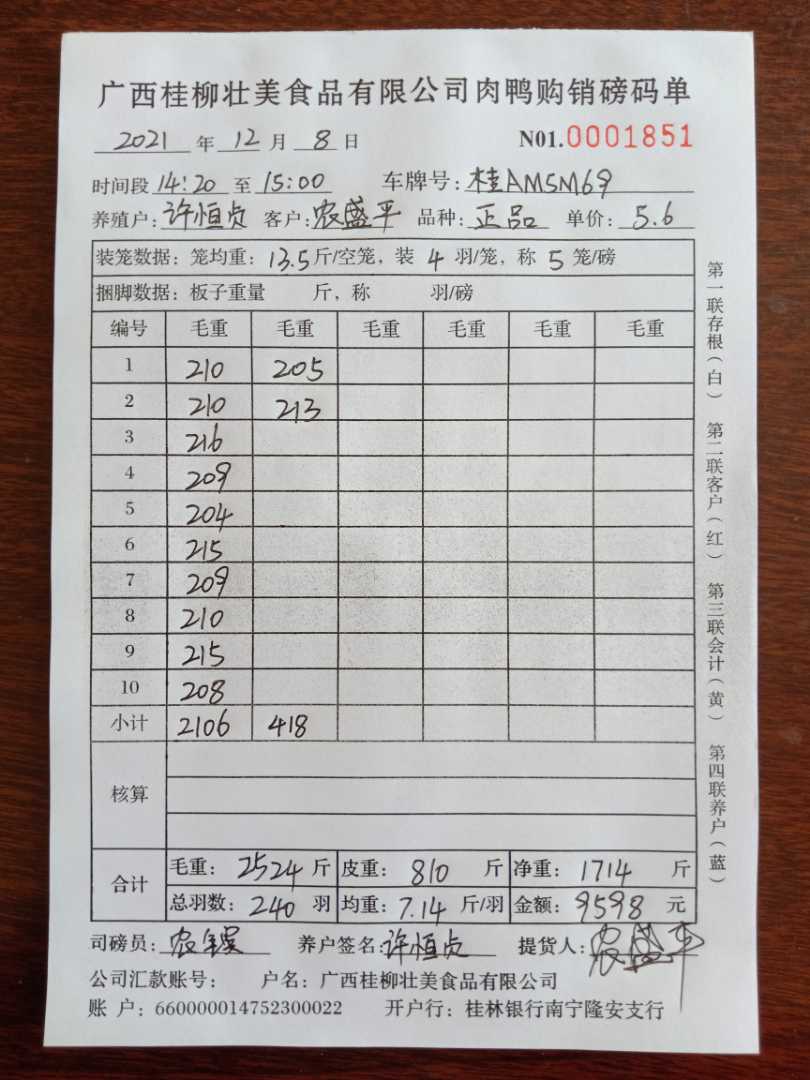 广西桂柳壮美食品有限公司肉鸭购销磅码单
2021 年 12 月 8 日 N01.0001851
时间段 14:20 至 15:00 车牌号: 桂AM5M69
养殖户: 许恒贞 客户: 农盛平 品种: 正品 单价: 5.6
装笼数据: 笼均重: 13.5 斤/空笼, 装 4 羽/笼, 称 5 笼/磅
捆脚数据: 板子重量 斤, 称 羽/磅
编号 毛重 毛重 毛重 毛重 毛重 毛重
1 210 205
2 210 213
3 216
4 209
5 204
6 215
7 209
8 210
9 215
10 208
小计 2106 418
核算
合计
毛重: 2524 斤 皮重: 810 斤 净重: 1714 斤
总羽数: 240 羽 均重: 7.14 斤/羽 金额: 9598 元
司磅员: 农 养户签名: 许恒贞 提货人: 农盛平
公司汇款账号: 户名: 广西桂柳壮美食品有限公司
账 户: 660000014752300022 开户行: 桂林银行南宁隆安支行
第一联存根(白) 第二联客户(红) 第三联会计(黄) 第四联养户(蓝)